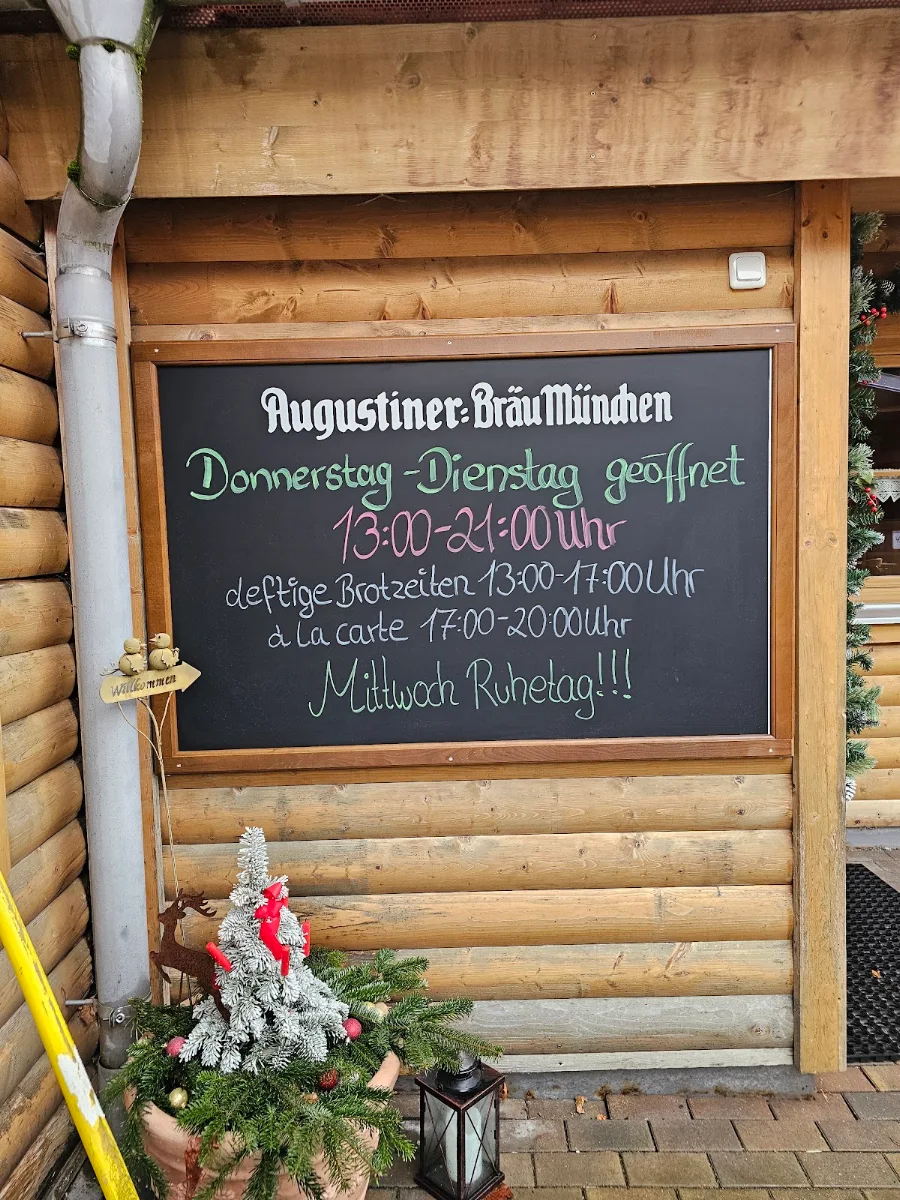 Augustiner-Bräu München
Donnerstag - Dienstag geöffnet
13:00-21:00 Uhr
deftige Brotzeiten 13:00-17:00 Uhr
à la carte 17:00-20:00 Uhr
Mittwoch Ruhetag!!!
Willkommen